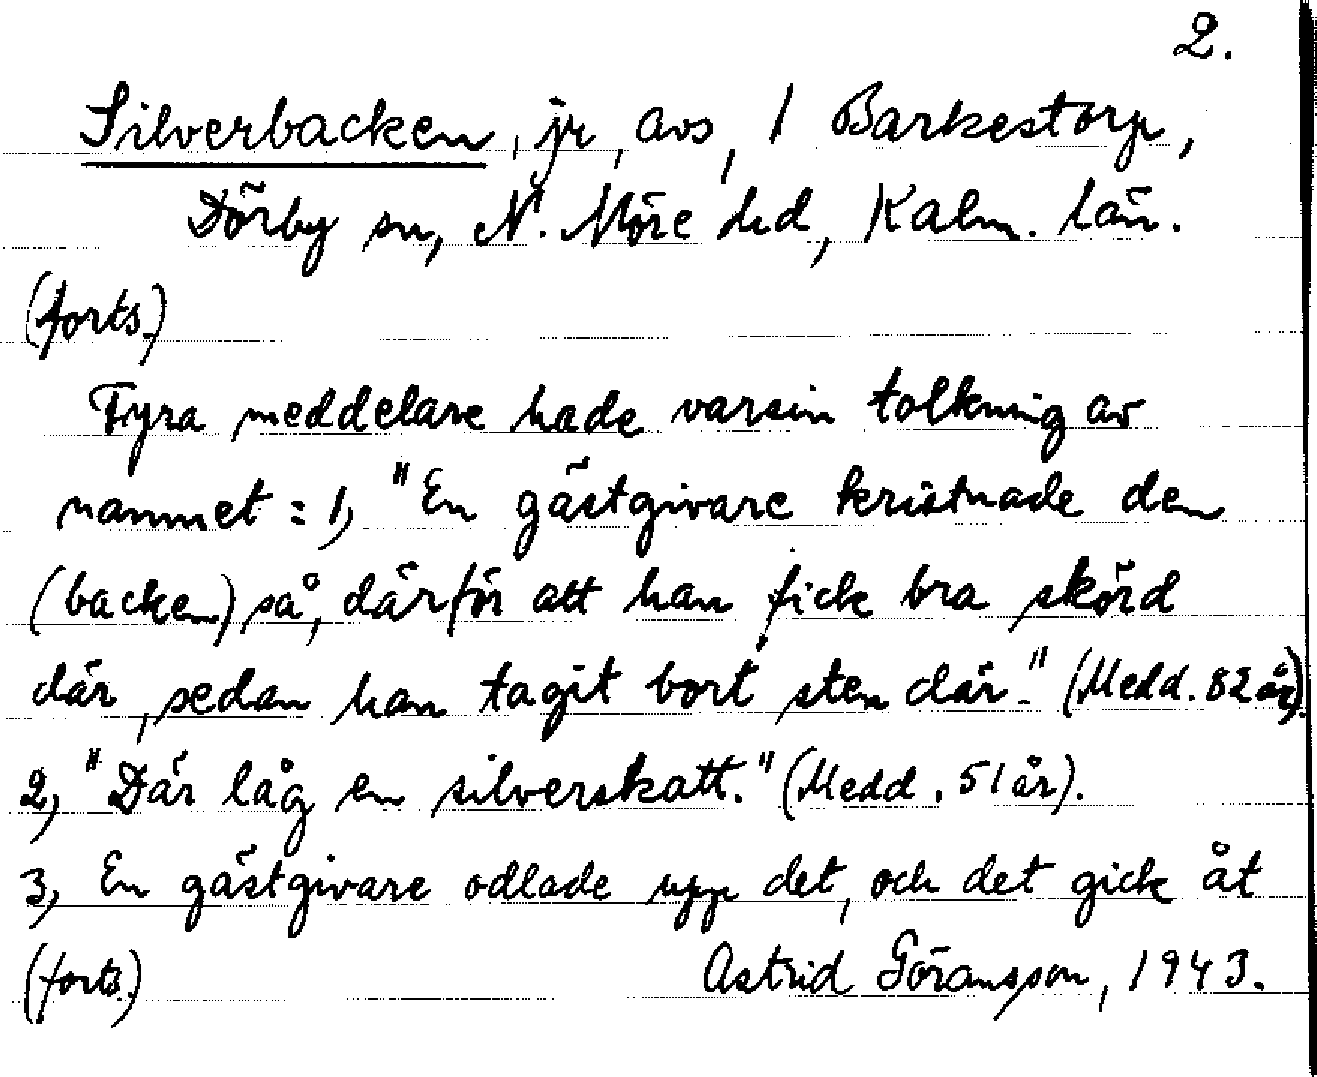 2.
Silverbacken, jr, avs, 1 Barkestorp,
Dörby sn, N. Möre hd, Kalm. län.
(forts.)
Fyra meddelare hade varsin tolkning av
namnet: 1, "En gästgivare kristnade den
(backen) så, därför att han fick bra skörd
där, sedan han tagit bort sten där." (Medd. 82 år).
2, "Där låg en silverskatt." (Medd. 51 år).
3, En gästgivare odlade upp det, och det gick åt
(forts.) Astrid Göransson, 1943.